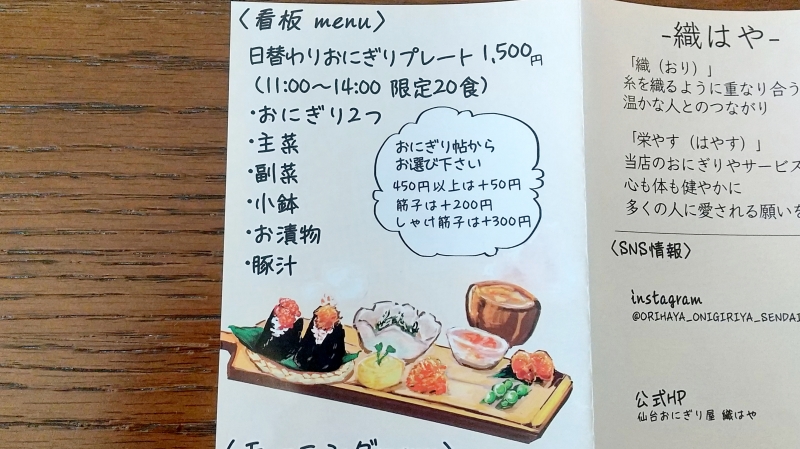 〈看板 menu〉
日替わりおにぎりプレート 1,500円
(11:00〜14:00 限定20食)
・おにぎり2つ
・主菜
・副菜
・小鉢
・お漬物
・豚汁
おにぎり帖から
お選び下さい
450円以上は+50円
筋子は+200円
しゃけ筋子は+300円
-織はや-
「織（おり）」
糸を織るように重なり合う
温かな人とのつながり
「栄やす（はやす）」
当店のおにぎりやサービス
心も体も健やかに
多くの人に愛される願いを
〈SNS情報〉
instagram
@ORIHAYA_ONIGIRIYA_SENDAI
公式HP
仙台おにぎり屋 織はや